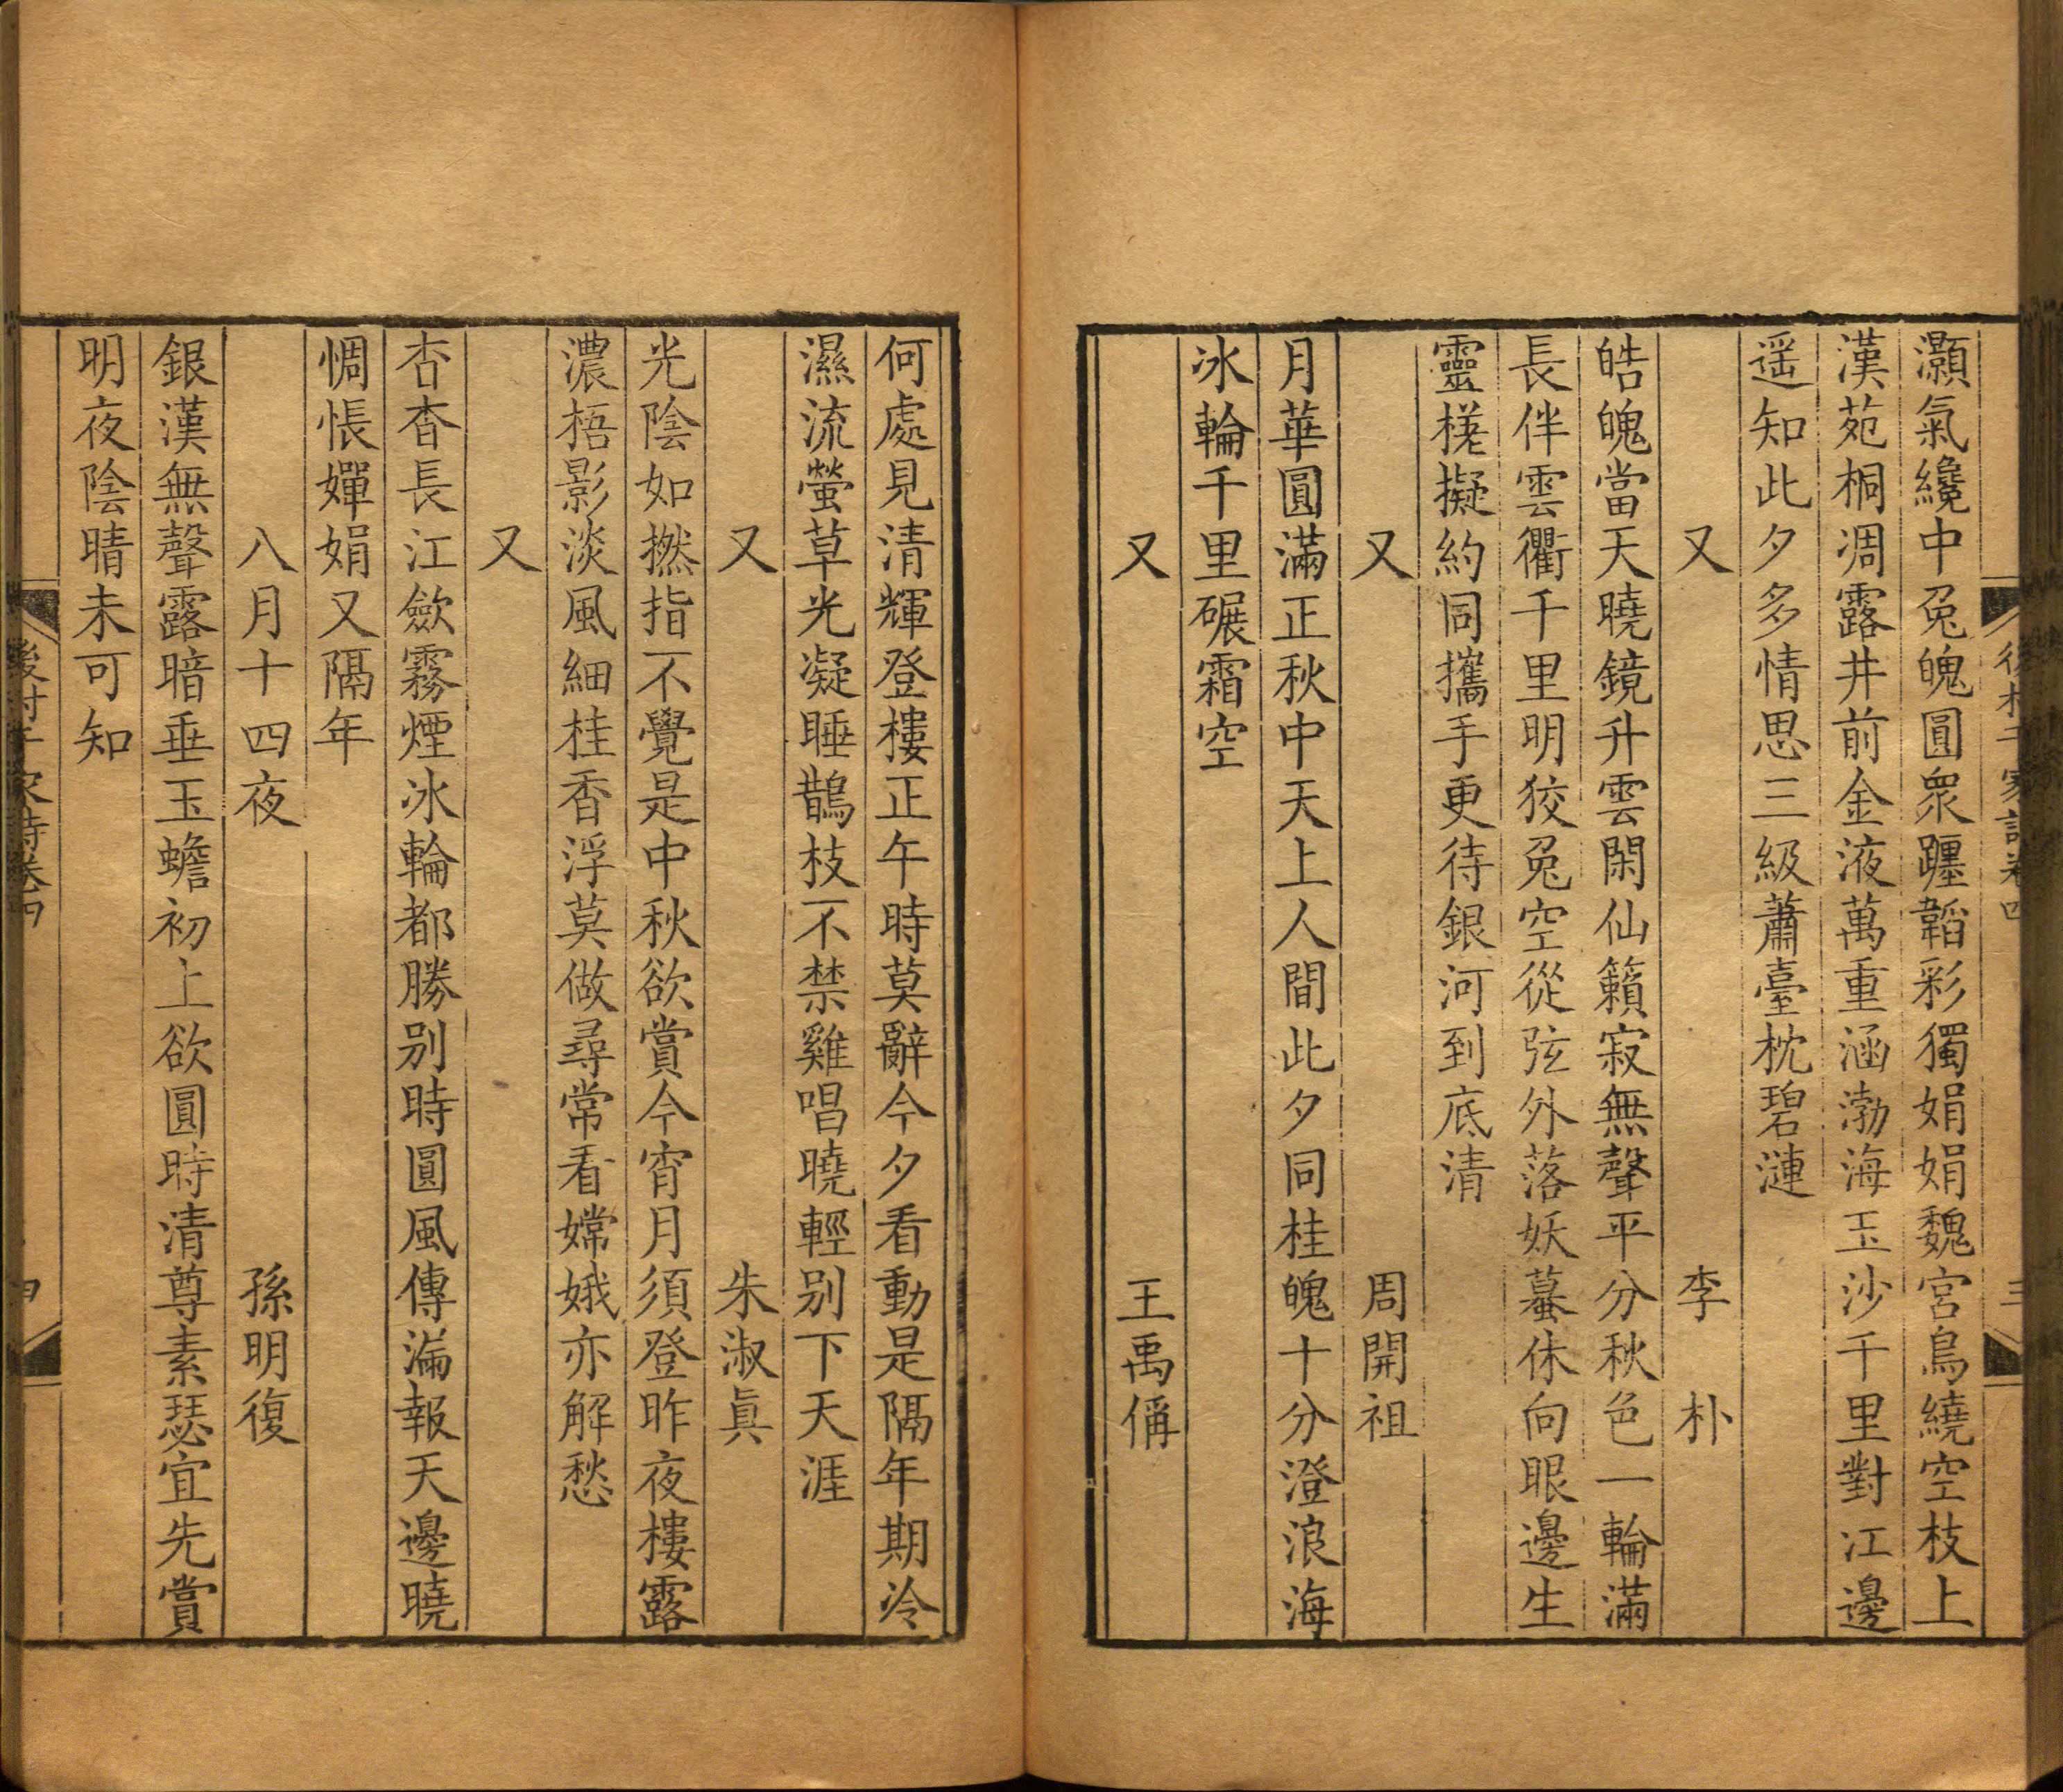 灝氣纔中兔魄圓衆躔韜彩獨娟娟魏宮烏繞空枝上
漢苑桐凋露井前金液萬重涵渤海玉沙千里對江邊
遥知此夕多情思三級蕭臺枕碧漣
又 李朴
皓魄當天曉鏡升雲閑仙籟寂無聲平分秋色一輪滿
長伴雲衢千里明狡兔空從弦外落妖蟇休向眼邊生
靈槎擬約同攜手更待銀河到底清
又 周開祖
月華圓滿正秋中天上人間此夕同桂魄十分澄浪海
冰輪千里碾霜空
又 王禹偁
何處見清輝登樓正午時莫辭今夕看動是隔年期冷
濕流螢草光凝睡鵲枝不禁雞唱曉輕别下天涯
又 朱淑眞
光陰如撚指不覺是中秋欲賞今宵月須登昨夜樓露
濃梧影淡風細桂香浮莫做尋常看嫦娥亦解愁
又
杳杳長江歛霧煙冰輪都勝别時圓風傳漏報天邊曉
惆悵嬋娟又隔年
八月十四夜 孫明復
銀漢無聲露暗垂玉蟾初上欲圓時清尊素瑟宜先賞
明夜陰晴未可知